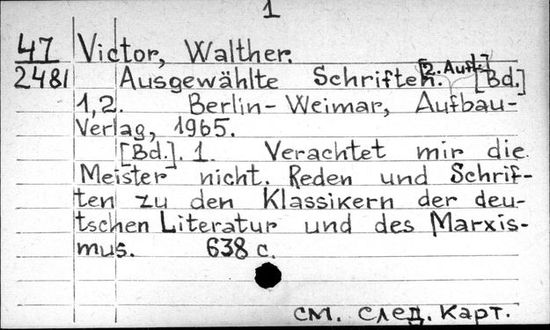 1
47 Victor, Walther.
2481 Ausgewählte Schriften. [2. Aufl.] [Bd.]
1,2. Berlin-Weimar, Aufbau-
Verlag, 1965.
[Bd.]. 1. Verachtet mir die
Meister nicht. Reden und Schrif-
ten zu den Klassikern der deu-
tschen Literatur und des Marxis-
mus. 638 с.
см. след. карт.